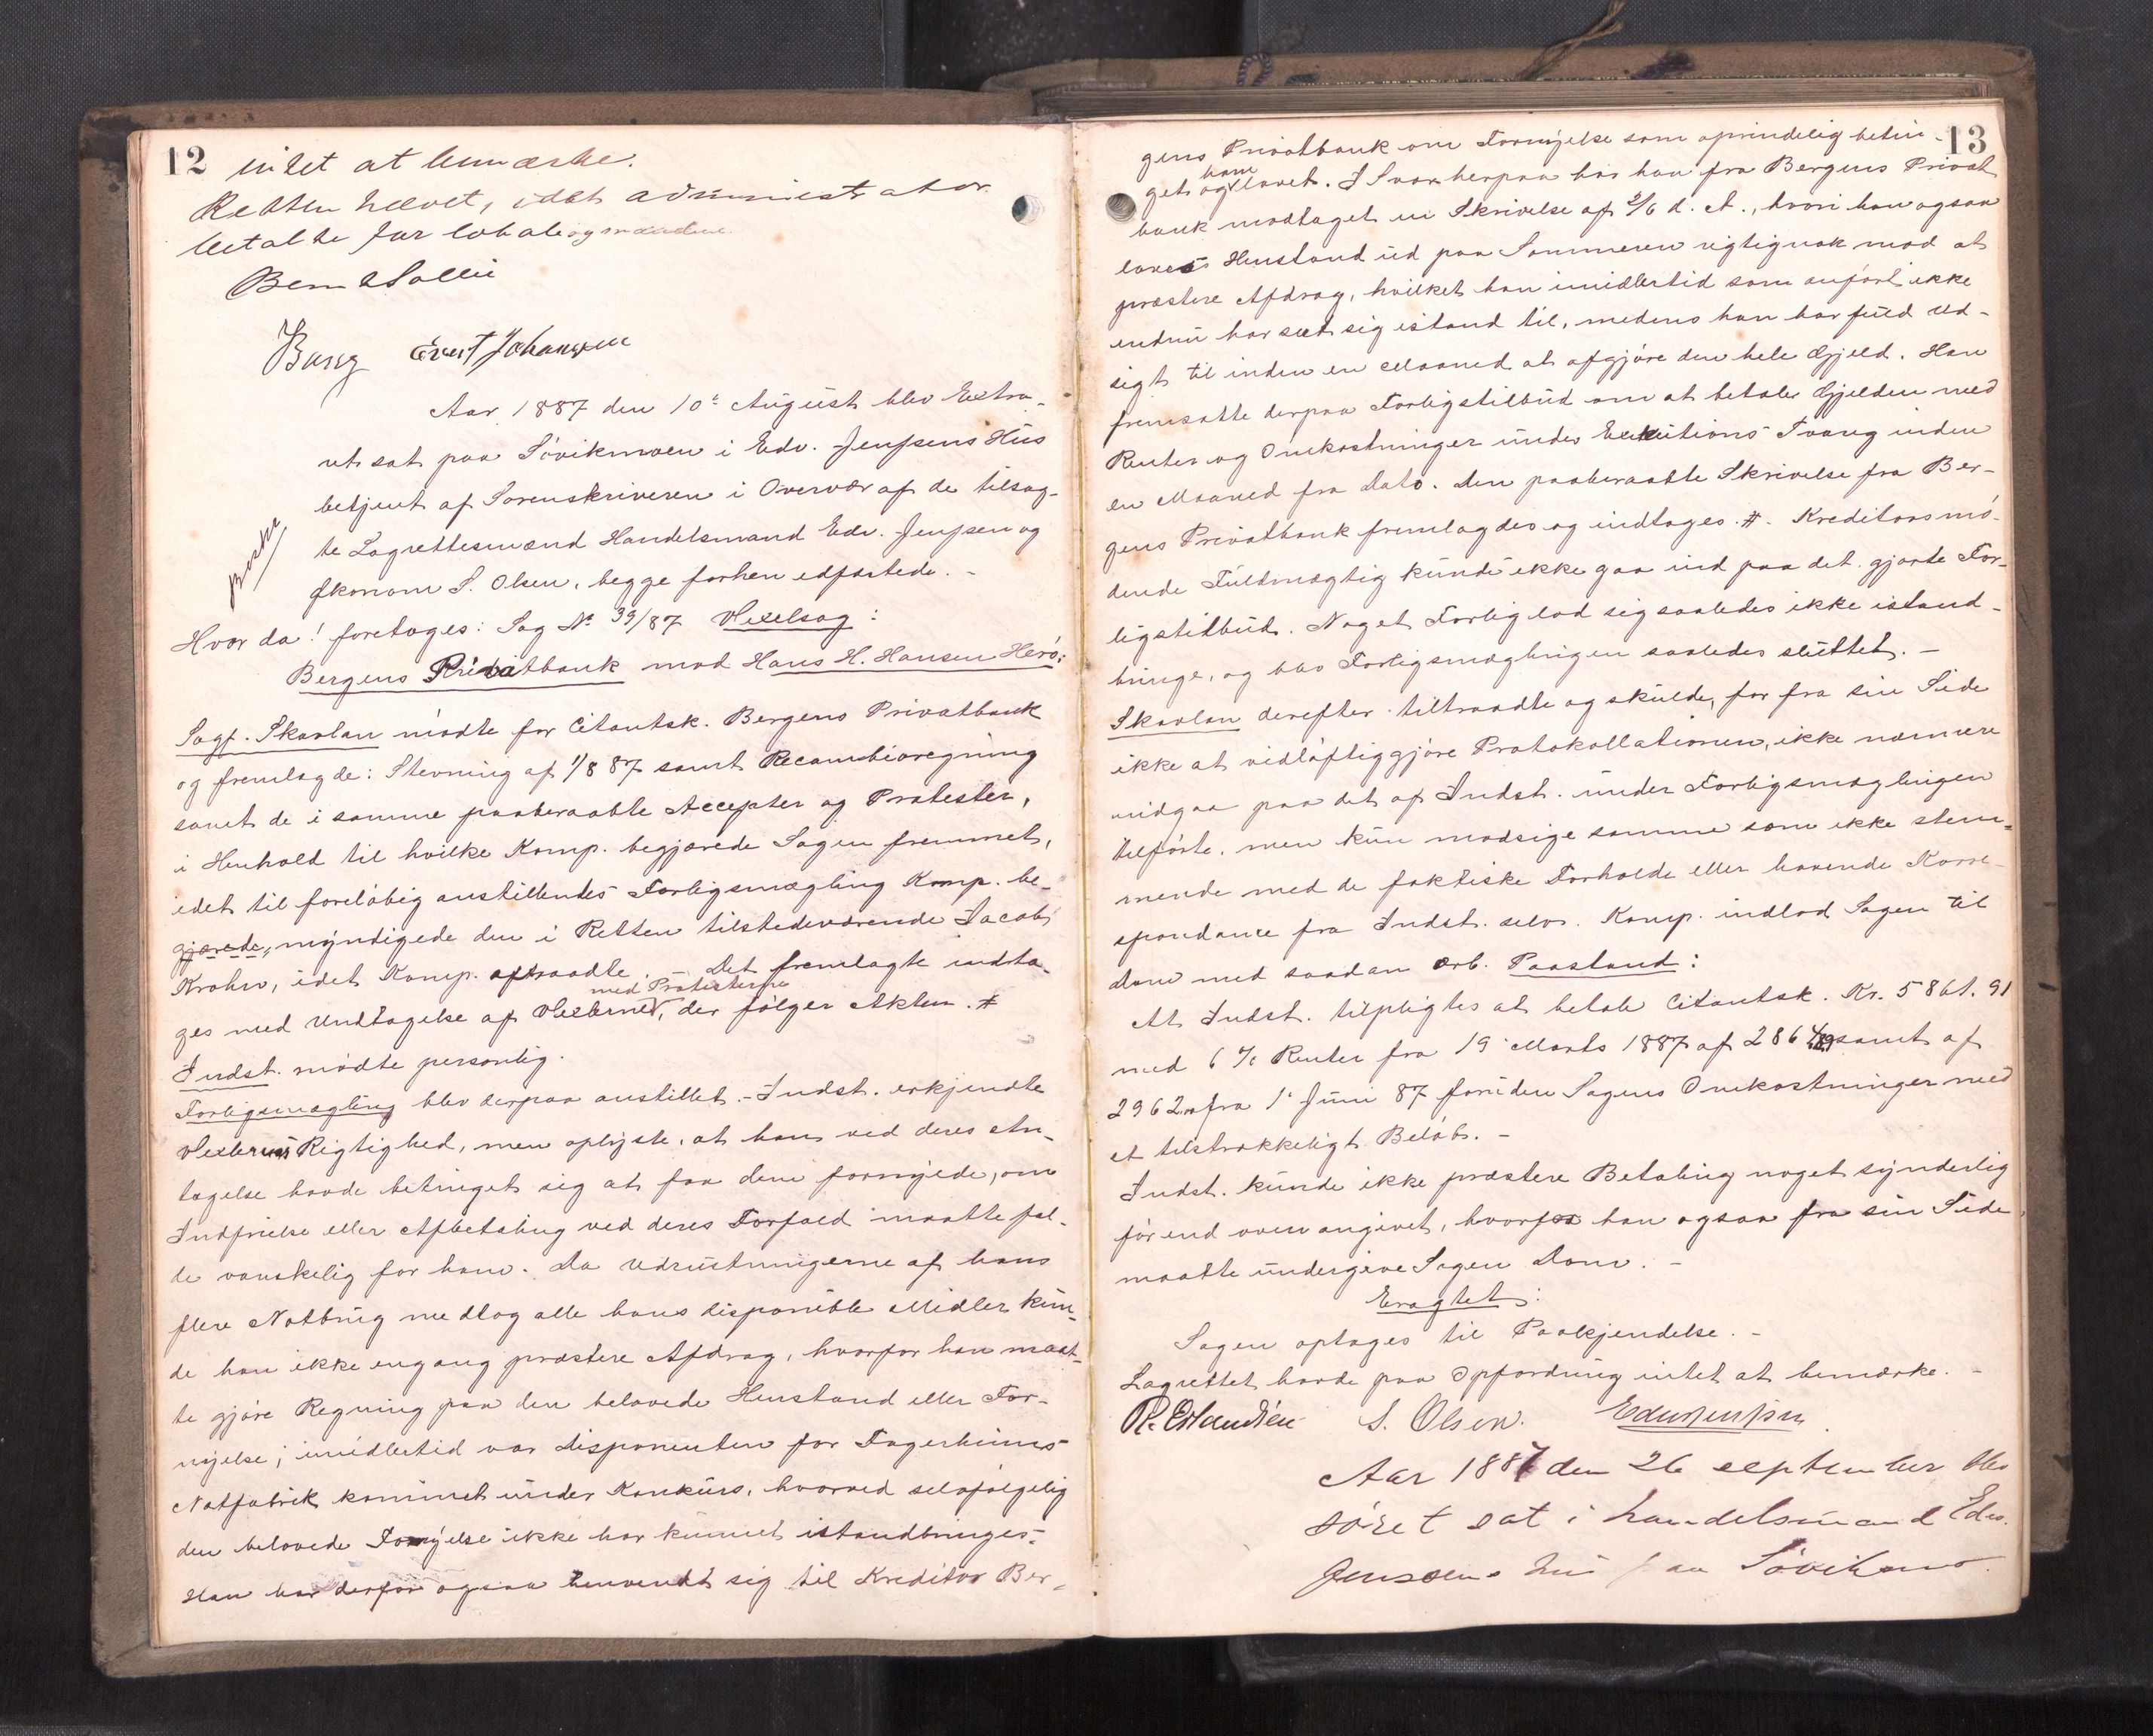 12 intet at bemærke.
Retten hævet, idet administrator
betalte for lokale og mændene.
Bernt Sollii
Barg Evert Johansen
Aar 1887 den 10de August blev Extra-
ret sat paa Sövikmoen i Edv. Jenssens Hus
betjent af Sorenskriveren i Overvær af de tilsag-
te Lagrettesmænd Handelsmand Edv. Jenssen og
Økonom S. Olsen, begge forhen edfæstede. -
Hvor da! foretoges: Sag No 39/87 Vexelsag:
Bergens Privatbank mod Hans H. Hansen Herö:
Sagf. Skavlan mödte for Citantsk. Bergens Privatbank
og fremlagde: Stevning af 1/8 87 samt Recambioregning
samt de i samme paaberaabte Accepter og Protester,
i Henhold til hvilke Komp. begjærede Sagen fremmet,
idet til forelöbig anstillendes Forligsmægling Komp. be-
gjærede, myndigede den i Retten tilstedeværende Jacob
Krohn, idet Komp. aftraadte. - Det fremlagte indta-
med Protesterne
ges med Undtagelse af Vexlerne, der fölger Akten. #
Indst. mödte personlig.
Forligsmægling blev derpaa anstillet. - Indst. erkjendte
Vexlernes Rigtighed, men oplyste, at han ved deres An-
tagelse havde betinget sig at faa dem fornyede, om
Indfrielse eller Afbetaling ved deres Forfald maatte fal-
de vanskelig for ham. Da Udrustningerne af hans
flere Notbrug medtog alle hans disponible Midler kun-
de han ikke engang præstere Afdrag, hvorfor han maat-
te gjöre Regning paa den belovede Henstand eller For-
nyelse; imidlertid var Disponenten for Fagerheims
Notfabrik kommet under Konkurs, hvorved selvfölgelig
den belovede Fornyelse ikke har kunnet istandbringes.
Han har derfor ogsaa henvendt sig til Kreditor Ber-
13
gens Privatbank om Fornyelse som oprindelig betin-
ham
get og lovet. I Svar herpaa har han fra Bergens Privat
bank modtaget en Skrivelse af 2/6 d. A., hvori han ogsaa
loves Henstand ud paa Sommeren rigtignok mod at
præstere Afdrag, hvilket han imidlertid som anfört ikke
endnu har seet sig istand til, medens han har fuld Ud-
sigt til inden en Maaned at afgjöre den hele Gjæld. Han
fremsatte derpaa Forligstilbud om at betale Gjælden med
Renter og Omkostninger under Exekutions Tvang inden
en Maaned fra Dato. Den paaberaabte Skrivelse fra Ber-
gens Privatbank fremlagdes og indtages. #. Kreditors mö-
dende Fuldmægtig kunde ikke gaa ind paa det gjorte For-
ligstilbud. Noget Forlig lod sig saaledes ikke istand-
bringe, og blev Forligsmæglingen saaledes sluttet. -
Skavlan derefter tiltraadte og skulde, for fra sin Side
ikke at vidlöftiggjöre Protokollationen, ikke nærmere
indgaa paa det af Indst. under Forligsmæglingen
tilförte, men kun modsige samme som ikke stem-
mende med de faktiske Forholde eller havende Korre-
spondance fra Indst. selv. Komp. indlod Sagen til
Dom med saadan ærb. Paastand:
At Indst. tilpligtes at betale Citantsk. Kr. 5861.91
med 6 % Renter fra 19 Marts 1887 af 2864 samt af
2962 fra 1ste Juni 87 foruden Sagens Omkostninger med
et tilstrækkeligt Belöb. -
Indst. kunde ikke præstere Betaling noget synderlig
för end ovenangivet, hvorfor han ogsaa fra sin Side
maatte undergive Sagen Dom. -
Eragtet:
Sagen optages til Paakjendelse. -
Lagrettet havde paa Opfordring intet at bemærke. -
R. Erlandsen S. Olsen. Edv Jenssen
Aar 1887 den 26 september blev
söret sat i handelsmand Edv.
Jenssens hus paa Sövikmo